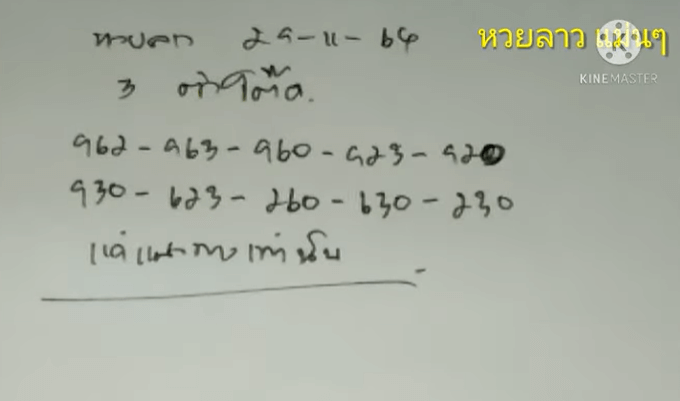 หวยลาว แม่นๆ
KINEMASTER
หวยลาว 29-11-64
3 ตัวโต๊ด.
962 - 963 - 960 - 923 - 920
930 - 623 - 260 - 630 - 230
แค่แนวทางเท่านั้น